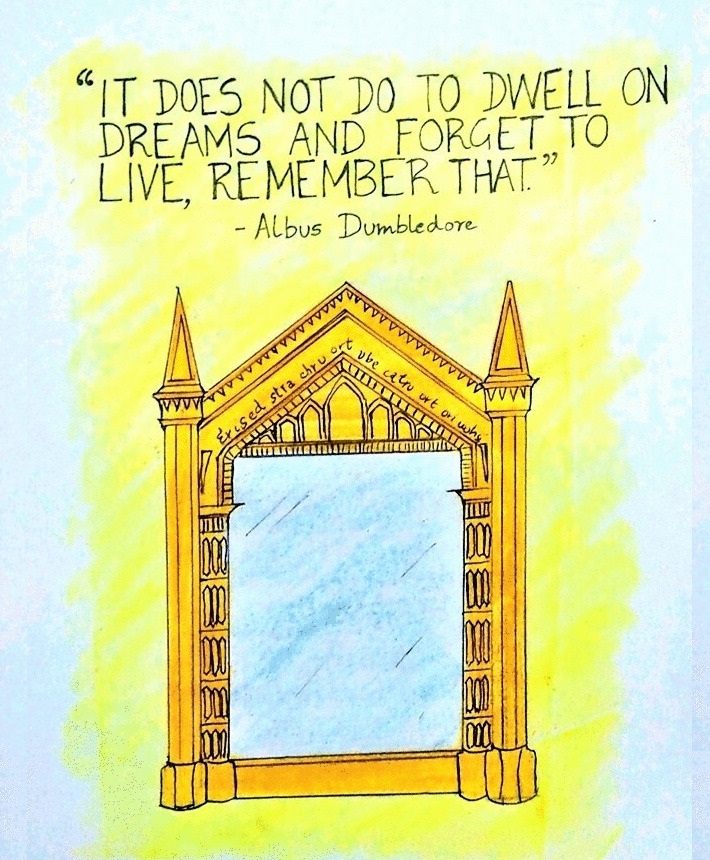 “IT DOES NOT DO TO DWELL ON
DREAMS AND FORGET TO
LIVE, REMEMBER THAT.”
- Albus Dumbledore
Erised stra ehru ort ube cafru ort on wohsi